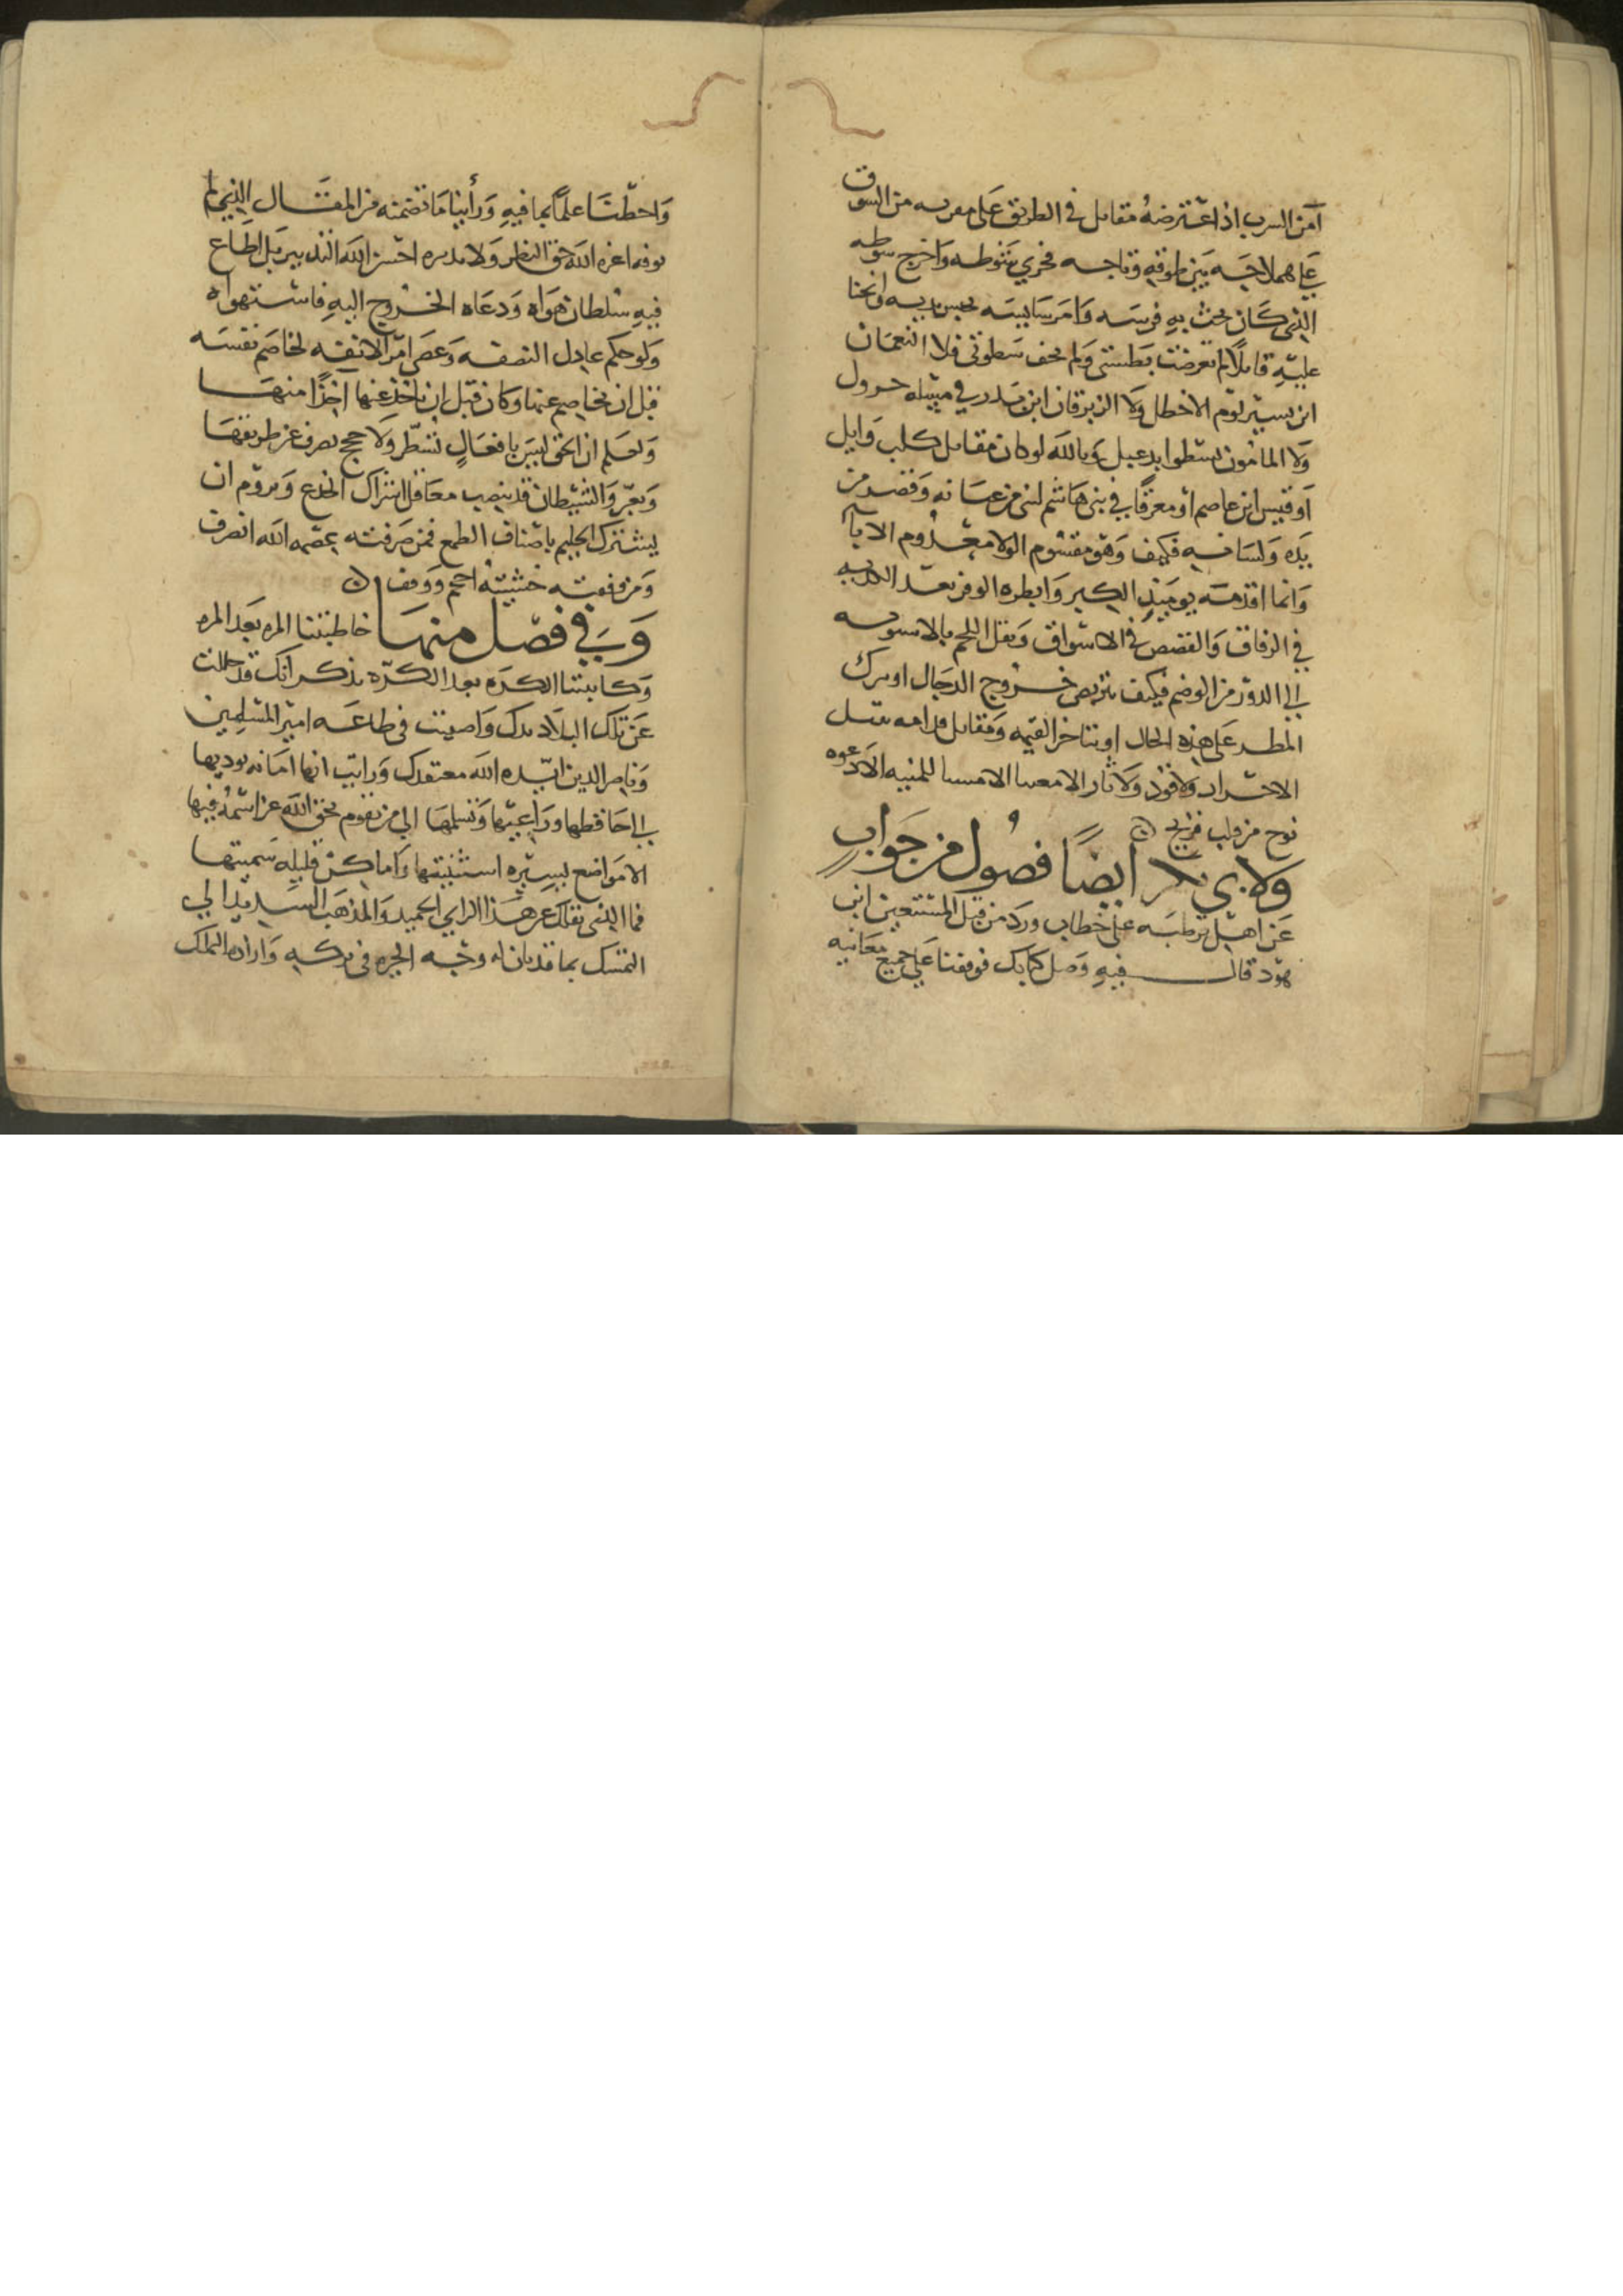 آمن السرب اذ اعترضه مقاتل في الطريق على مقربه من السوق
على هملاجه بين طوقه وتاجه فجرى شوطه واخرج سوطه
الذي كان يحث به فرسه وامر سايسه وانحنا
عليه قايلا لم تعرضت بطشتي ولم تخف سطوتي فلا النعمان
ابن بسير لوم الاخطل ولا الزبرقان ابن بدر في مثله جرول
ولا المامون لسطوا بدعبل وبالله لو كان مقاتل كليب وايل
او قيس ابن عاصم او معرقا في بني هاشم لثنى من عنانه وقصر من
يده ولسانه فكيف وهو مقسوم الولا معدوم الابا
وانما اقدمه يوميذ الكبر وابطره الوفر بعد
في الزقاق والقصص في الاسواق ونقل اللحم
الى الدور من الوضم فكيف يتربص خروج الدجال او يترك
المطر على هذه الحال او يتاخر القيمه ومقاتل
الاشرار ولا قود ولا ثار الا الا للمنيه الا دعوه
نوح من قلب قريح
ولابي بكر ايضا فصول من جواب
عن اهل قرطبه على خطاب ورد من قبل المستعين ابن
هود قال فيه وصل كتابك فوقفنا على جميع معانيه
واحطنا علما بما فيه وراينا ما تضمنه من المقال الذي لم
يوفه اعزه الله حق النظر ولا تدبره احسن الله التدبير بل اطاع
فيه سلطان هواه ودعاه الخروج اليه فاستهواه
ولو حكم عادل النصفه وعصى امر الانفه لخاصم نفسه
قبل ان يخاصم عنها وكان قبل ان ياخذ عنها اخذا منها
ولعلم ان الحق ليس بافعال تسطر ولا حجج تصرف عن طريقها
وتغير والشيطان قد ينصب معاقل اشراك الخدع ويروم ان
يستزل الحليم باصناف الطمع فمن صرفته عصمه الله انصرف
ومن وقفته خشيته احجم ووقف
وفي فصل منها خاطبتنا المره بعد المره
وكاتبتنا الكره بعد الكره تذكر انك قد حللت
عن تلك البلاد يدك واصبت في طاعه امير المسلمين
وناصر الدين ايده الله معتقدك ورايت انها امانه توديها
الى حافظها وراعيها وتسلمها الى من يقوم بحق الله عز اسمه فيها
الا مواضع يسيره استثنيتها واماكن قليله سميتها
فما الذي نقلك عن هذا الراي الحميد والمذهب السديد الى
التمسك بما قد بان له وجه الخيره في تركه واراده الملك